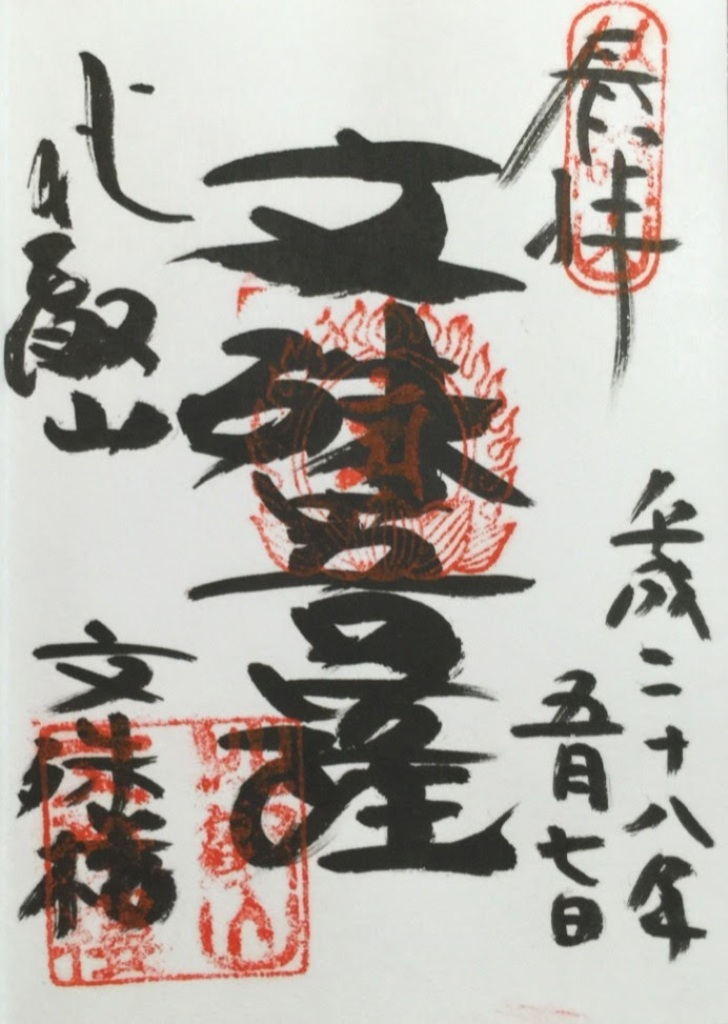 奉拝
平成二十八年
五月七日
文殊菩薩
比叡山
文殊楼